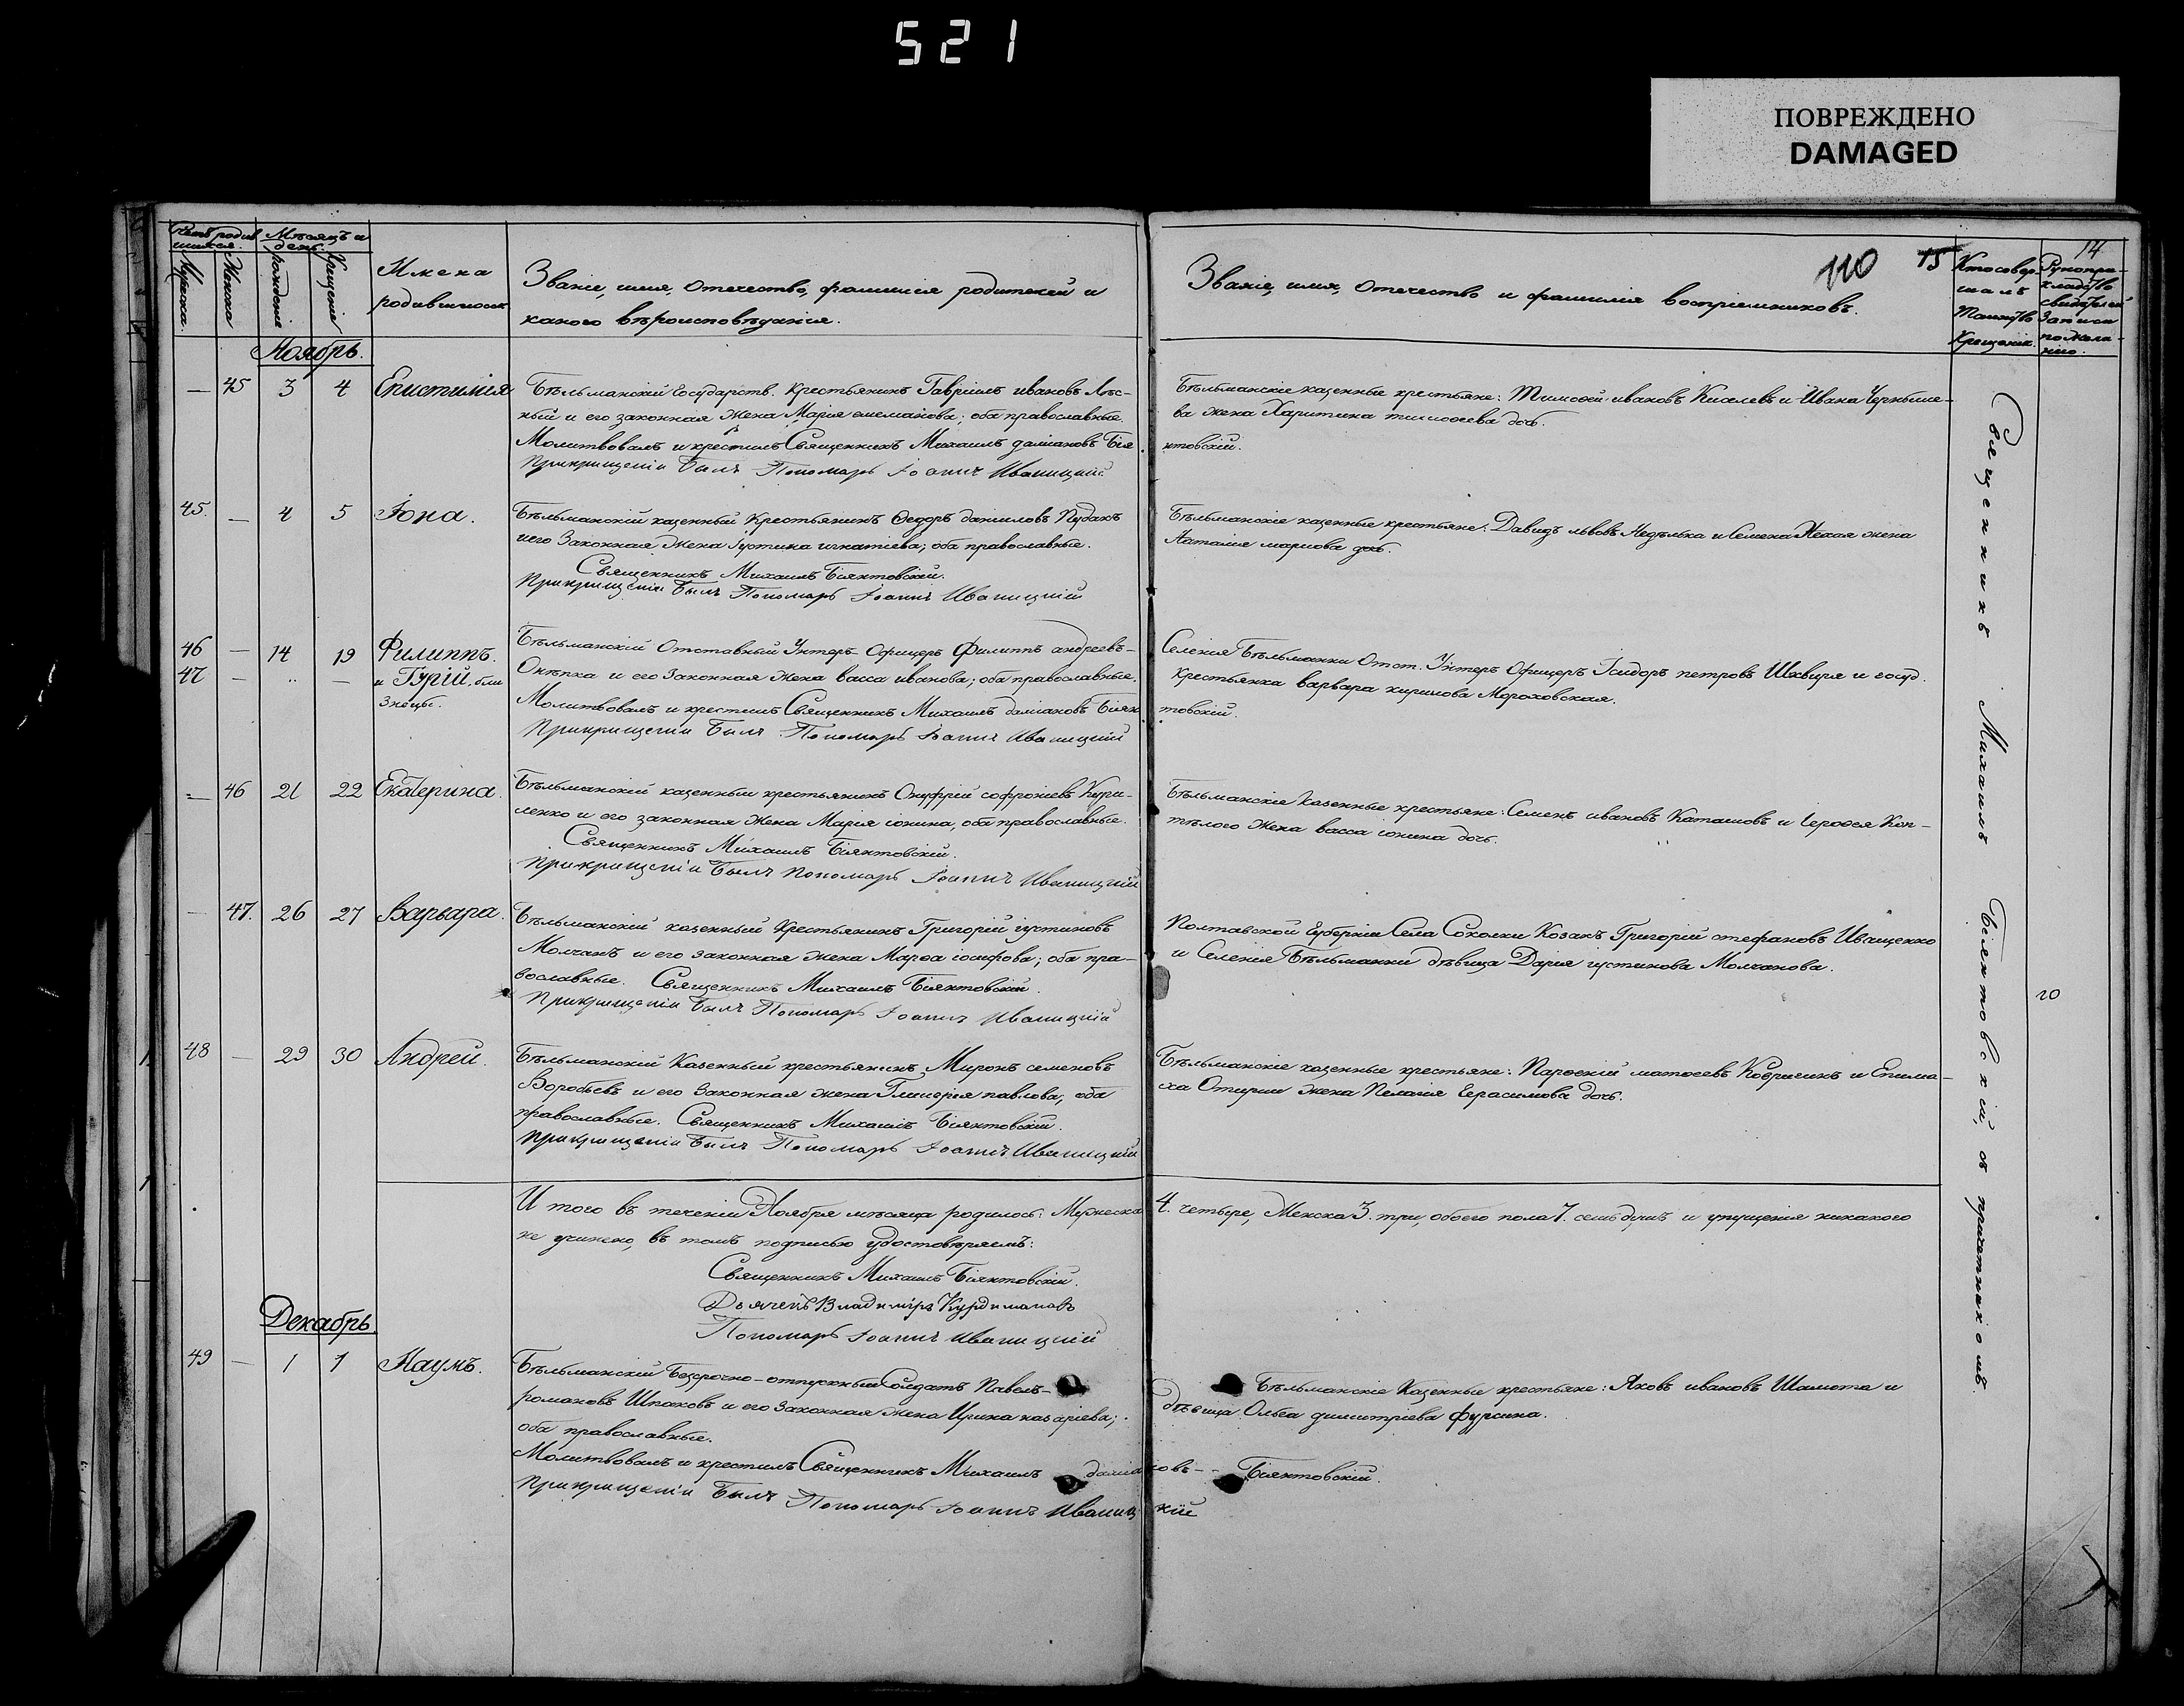 521
ПОВРЕЖДЕНО
DAMAGED
110 15 14
Счетъ родив
шихся.
Мѣсяцъ и
день.
Мужеска.
Женска
рожденія
Крещенія
Имена
родившихся
Званіе, имя, отечество, фамилія родителей и
какого вѣроисповѣданія.
Званіе, имя, отечество и фамилія воспріемниковъ.
Кто совер-
шалъ
Таинство
Крещенія.
Рукопри-
кладство
свидѣтелей
Записи
по жела-
нію.
Ноябрь.
— 45 3 4 Епистимія
Бѣльманскій Государств. Крестьянинъ Гавріилъ ивановъ Лѣс-
ный и его законная жена Марія; оба православные.
Молитвовалъ и крестилъ Священникъ Михаилъ даміановъ Бія
При крищеніи Былъ Пономарь Іоаннъ Иваницкій
Бѣльманскіе казенные крестьяне: Тимофей ивановъ Киселевъ и Ивана Черныше-
ва жена Харитина тимофеева дочь.
нтовскій.
45. — 4 5 Іона.
Бѣльманскій казенный Крестьянинъ Ѳедоръ даниловъ Пудакъ
и его Законная Жена Іустина игнатіева; оба православные.
Священникъ Михаилъ Біянтовскій.
При крищеніи Былъ Пономарь Іоаннъ Иваницкій
Бѣльманскіе казенные крестьяне: Давидъ львовъ Недѣлька и Семена жена
Наталія маркова дочь.
46 — 14 19 Филиппъ.
47 — " — и Гурій, бли
знецы.
Бѣльманскій Отставный Унтеръ-Офицеръ Филиппъ андреевъ-
и его Законная Жена васса иванова; оба православные.
Молитвовалъ и крестилъ Священникъ Михаилъ даміановъ Біян
При крищеніи Былъ Пономарь Іоаннъ Иваницкій
Селенія Бѣльманки Отст. Унтеръ Офицеръ Ісидоръ петровъ Шквиря и госуд.
Крестьянка варвара кирилова Мороховская.
товскій.
— 46 21 22 Екатерина.
Бѣльманскій казенный крестьянинъ Онуфрій софроніевъ Кури-
ленко и его законная Жена Марія іонина, оба православные.
Священникъ Михаилъ Біянтовскій.
При крищеніи Былъ Пономарь Іоаннъ Иваницкій
Бѣльманскіе Казенные крестьяне: Семенъ ивановъ Каташовъ и Іероѳея Коп-
тѣлого Жена васса іонина дочь.
— 47. 26 27 Варвара.
Бѣльманскій казенный Крестьянинъ Григорій іустиновъ
Молчанъ и его законная жена Марѳа іосифова; оба пра-
вославные. Священникъ Михаилъ Біянтовскій.
При крищеніи Былъ Пономарь Іоаннъ Иваницкій
Полтавской Губерніи Села Соколки Козакъ Григорій стефановъ Иващенко
и Селенія Бѣльманки дѣвица Дарія іустинова Молчанова.
20
48 — 29 30 Андрей.
Бѣльманскій Казенный крестьянинъ Миронъ семеновъ
Воробьевъ и его Законная жена Гликерія павлова, оба
православные. Священникъ Михаилъ Біянтовскій.
При крищеніи Былъ Пономарь Іоаннъ Иваницкій
Бѣльманскіе казенные крестьяне: Парѳеній матѳеевъ Ковригинъ и Епима-
ха жена Пелагія Герасимова дочь.
И того въ теченіи Ноября мѣсяца родилось: Мужеска 4. четыре, Женска 3. три, обоего пола 7. семь душъ и упущенія никакого
не учинено, въ томъ подписью удостовѣряемъ:
Священникъ Михаилъ Біянтовскій.
Дьячекъ Владиміръ Курдимановъ
Пономарь Іоаннъ Иваницкій
Декабрь.
49 — 1 1 Наумъ.
Бѣльманскій Безсрочно-отпускный Солдатъ Павелъ-
романовъ Шпаковъ и его Законная жена Ирина назаріева;
оба православные.
Молитвовалъ и крестилъ Священникъ Михаилъ даміановъ-- Біянтовскій.
При крищеніи Былъ Пономарь Іоаннъ Иваницкій
Бѣльманскіе Казенные крестьяне: Яковъ ивановъ Шамота и
дѣвица Ольга димитріева Фурсина.
Священникъ Михаилъ Біянтовскій, съ причетникомъ